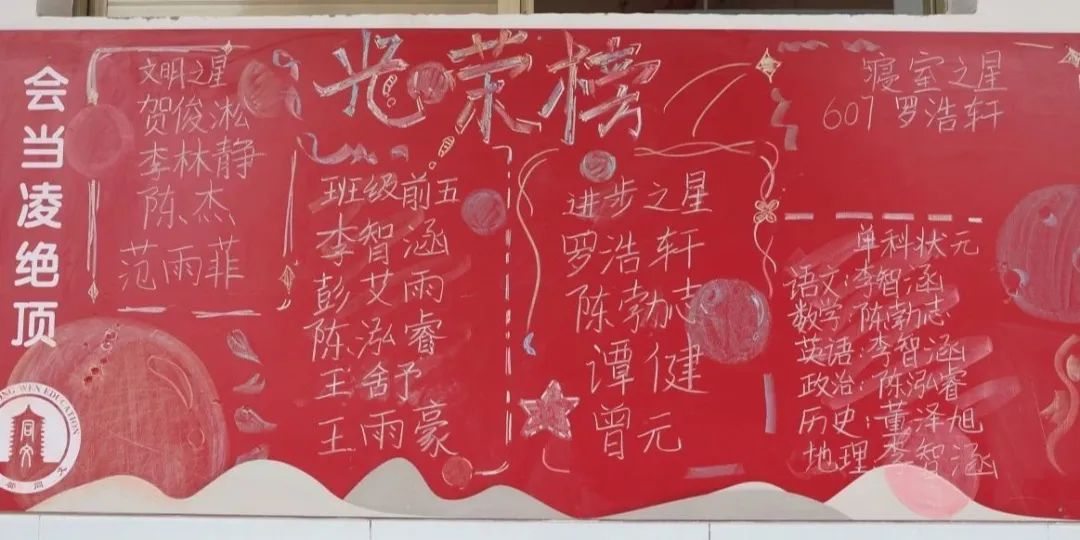 会当凌绝顶
光荣榜
文明之星
贺俊淞
李林静
陈杰
范雨菲
班级前五
李智涵
彭艾雨
陈泓睿
王舒
王雨豪
进步之星
罗浩轩
陈勃志
谭健
曾元
寝室之星
607 罗浩轩
单科状元
语文:李智涵
数学:陈勃志
英语:李智涵
政治:陈泓睿
历史:董泽旭
地理:李智涵
WEN EDUCATION
同文